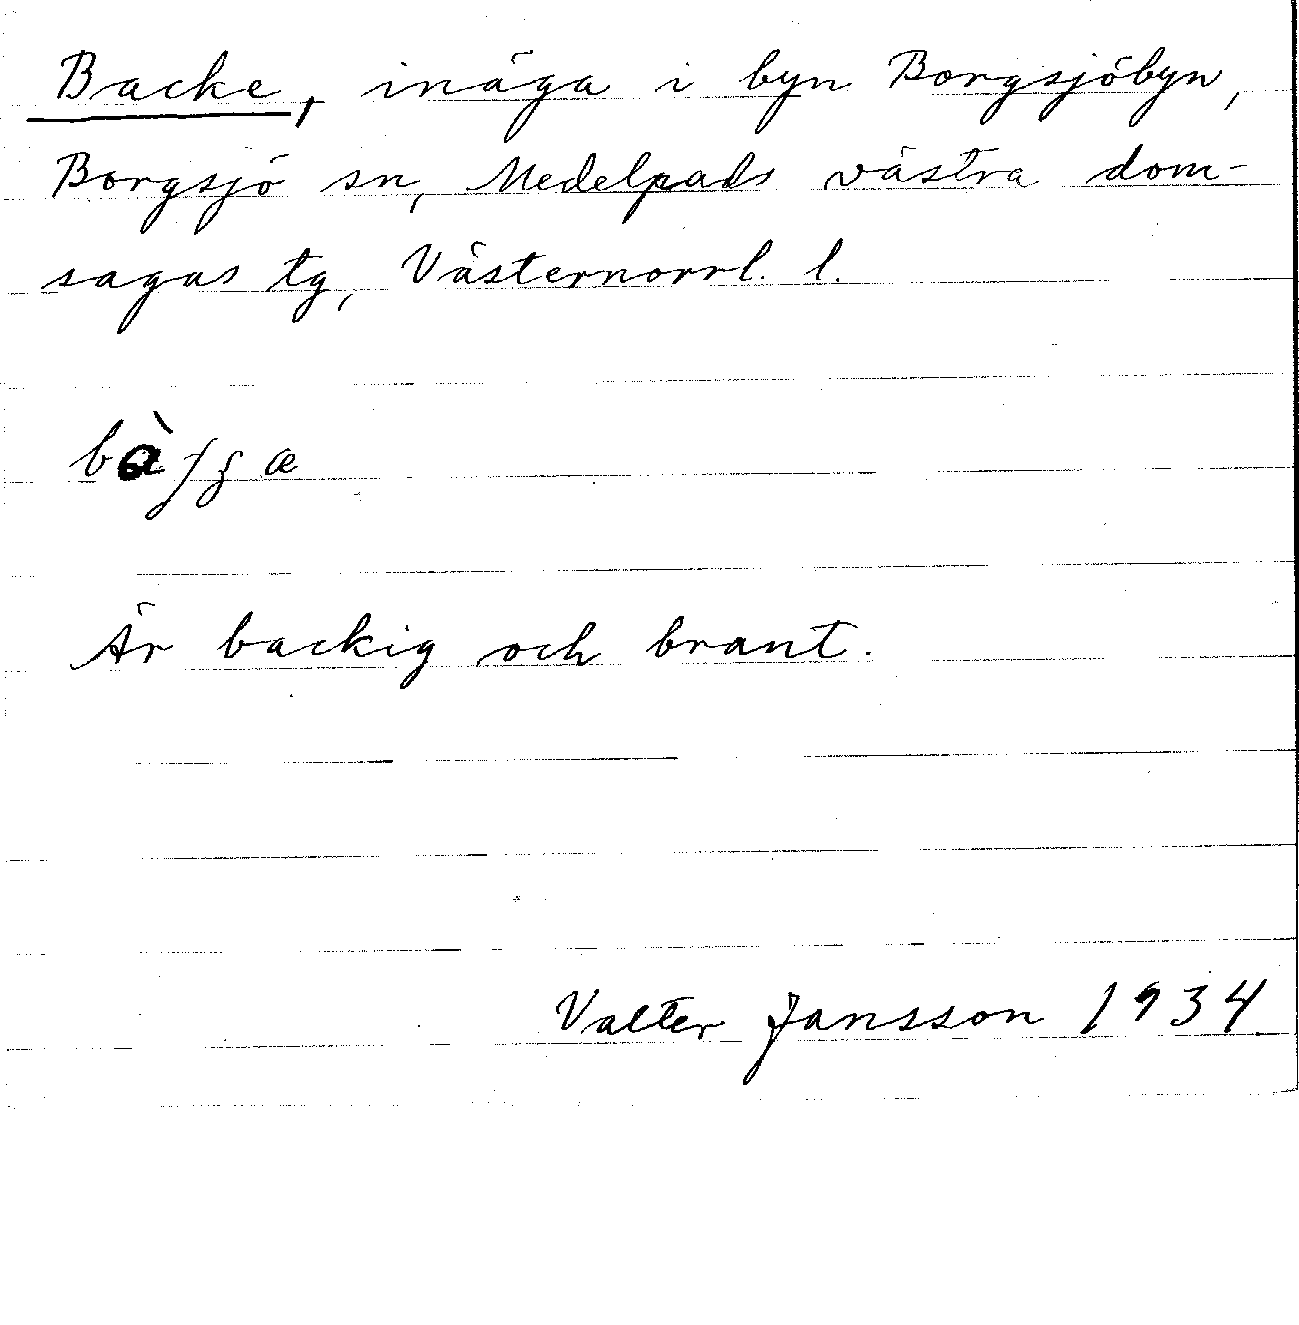 Backe, inäga i byn Borgsjöbyn,
Borgsjö sn, Medelpads västra dom-
sagas tg, Västernorrl. l.
Är backig och brant.
Valter Jansson 1934